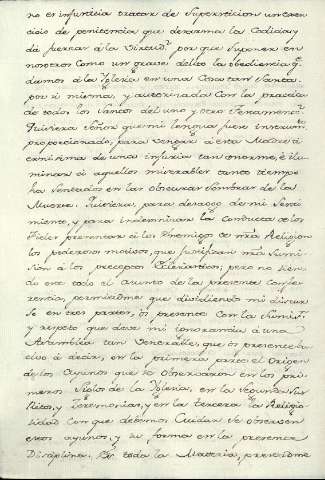 no es injusticia tratar de Supersticion un exer-
cicio de penitencia que desarma la Codicia, y
dá fuerzas á la Virtud? por que suponer en
nosotros como un grave delito la obediencia q.
damos á la Iglesia en una Cosa tan Santa
por si misma, y autorizada Con la practica
de todos los Santos del uno, y otro Testamento?
Quisiera Señor que mi lengua fuese instrumto.
proporcionado, para vengar á esta Madre á-
mantisima de una injuria tan enorme, é ilu-
minar á aquellos miserables tanto tiempo
ha Sentados en las obscuras Sombras de la
Muerte. Quisiera, para desaogo de mi Senti-
miento, y para indemnizar la Conducta de los
Fieles presentar á los Enemigos de nra Religion
los poderosos motivos, que justifican nra Sumi-
sion á los preceptos Eclesiasticos; pero no Sien-
do este todo el asunto de la presente Confe-
rencia, permitidme que dividiendo mi discur-
so en tres partes, os presente Con la Sumisn.
y respeto que debe mi ignorancia á una
Asamblea tan Venerable, que os presente buelvo
á decir, en la primera parte el Origen
de los Ayunos que se observaron en los pri-
meros Siglos de la Iglesia, en la segunda Sus
Ritos, y Ceremonias, y en la tercera la Religio-
sidad Con que debemos Cuidar Se observen
estos ayunos, y su forma en la presente
Disciplina. Es toda la Materia, prestadme